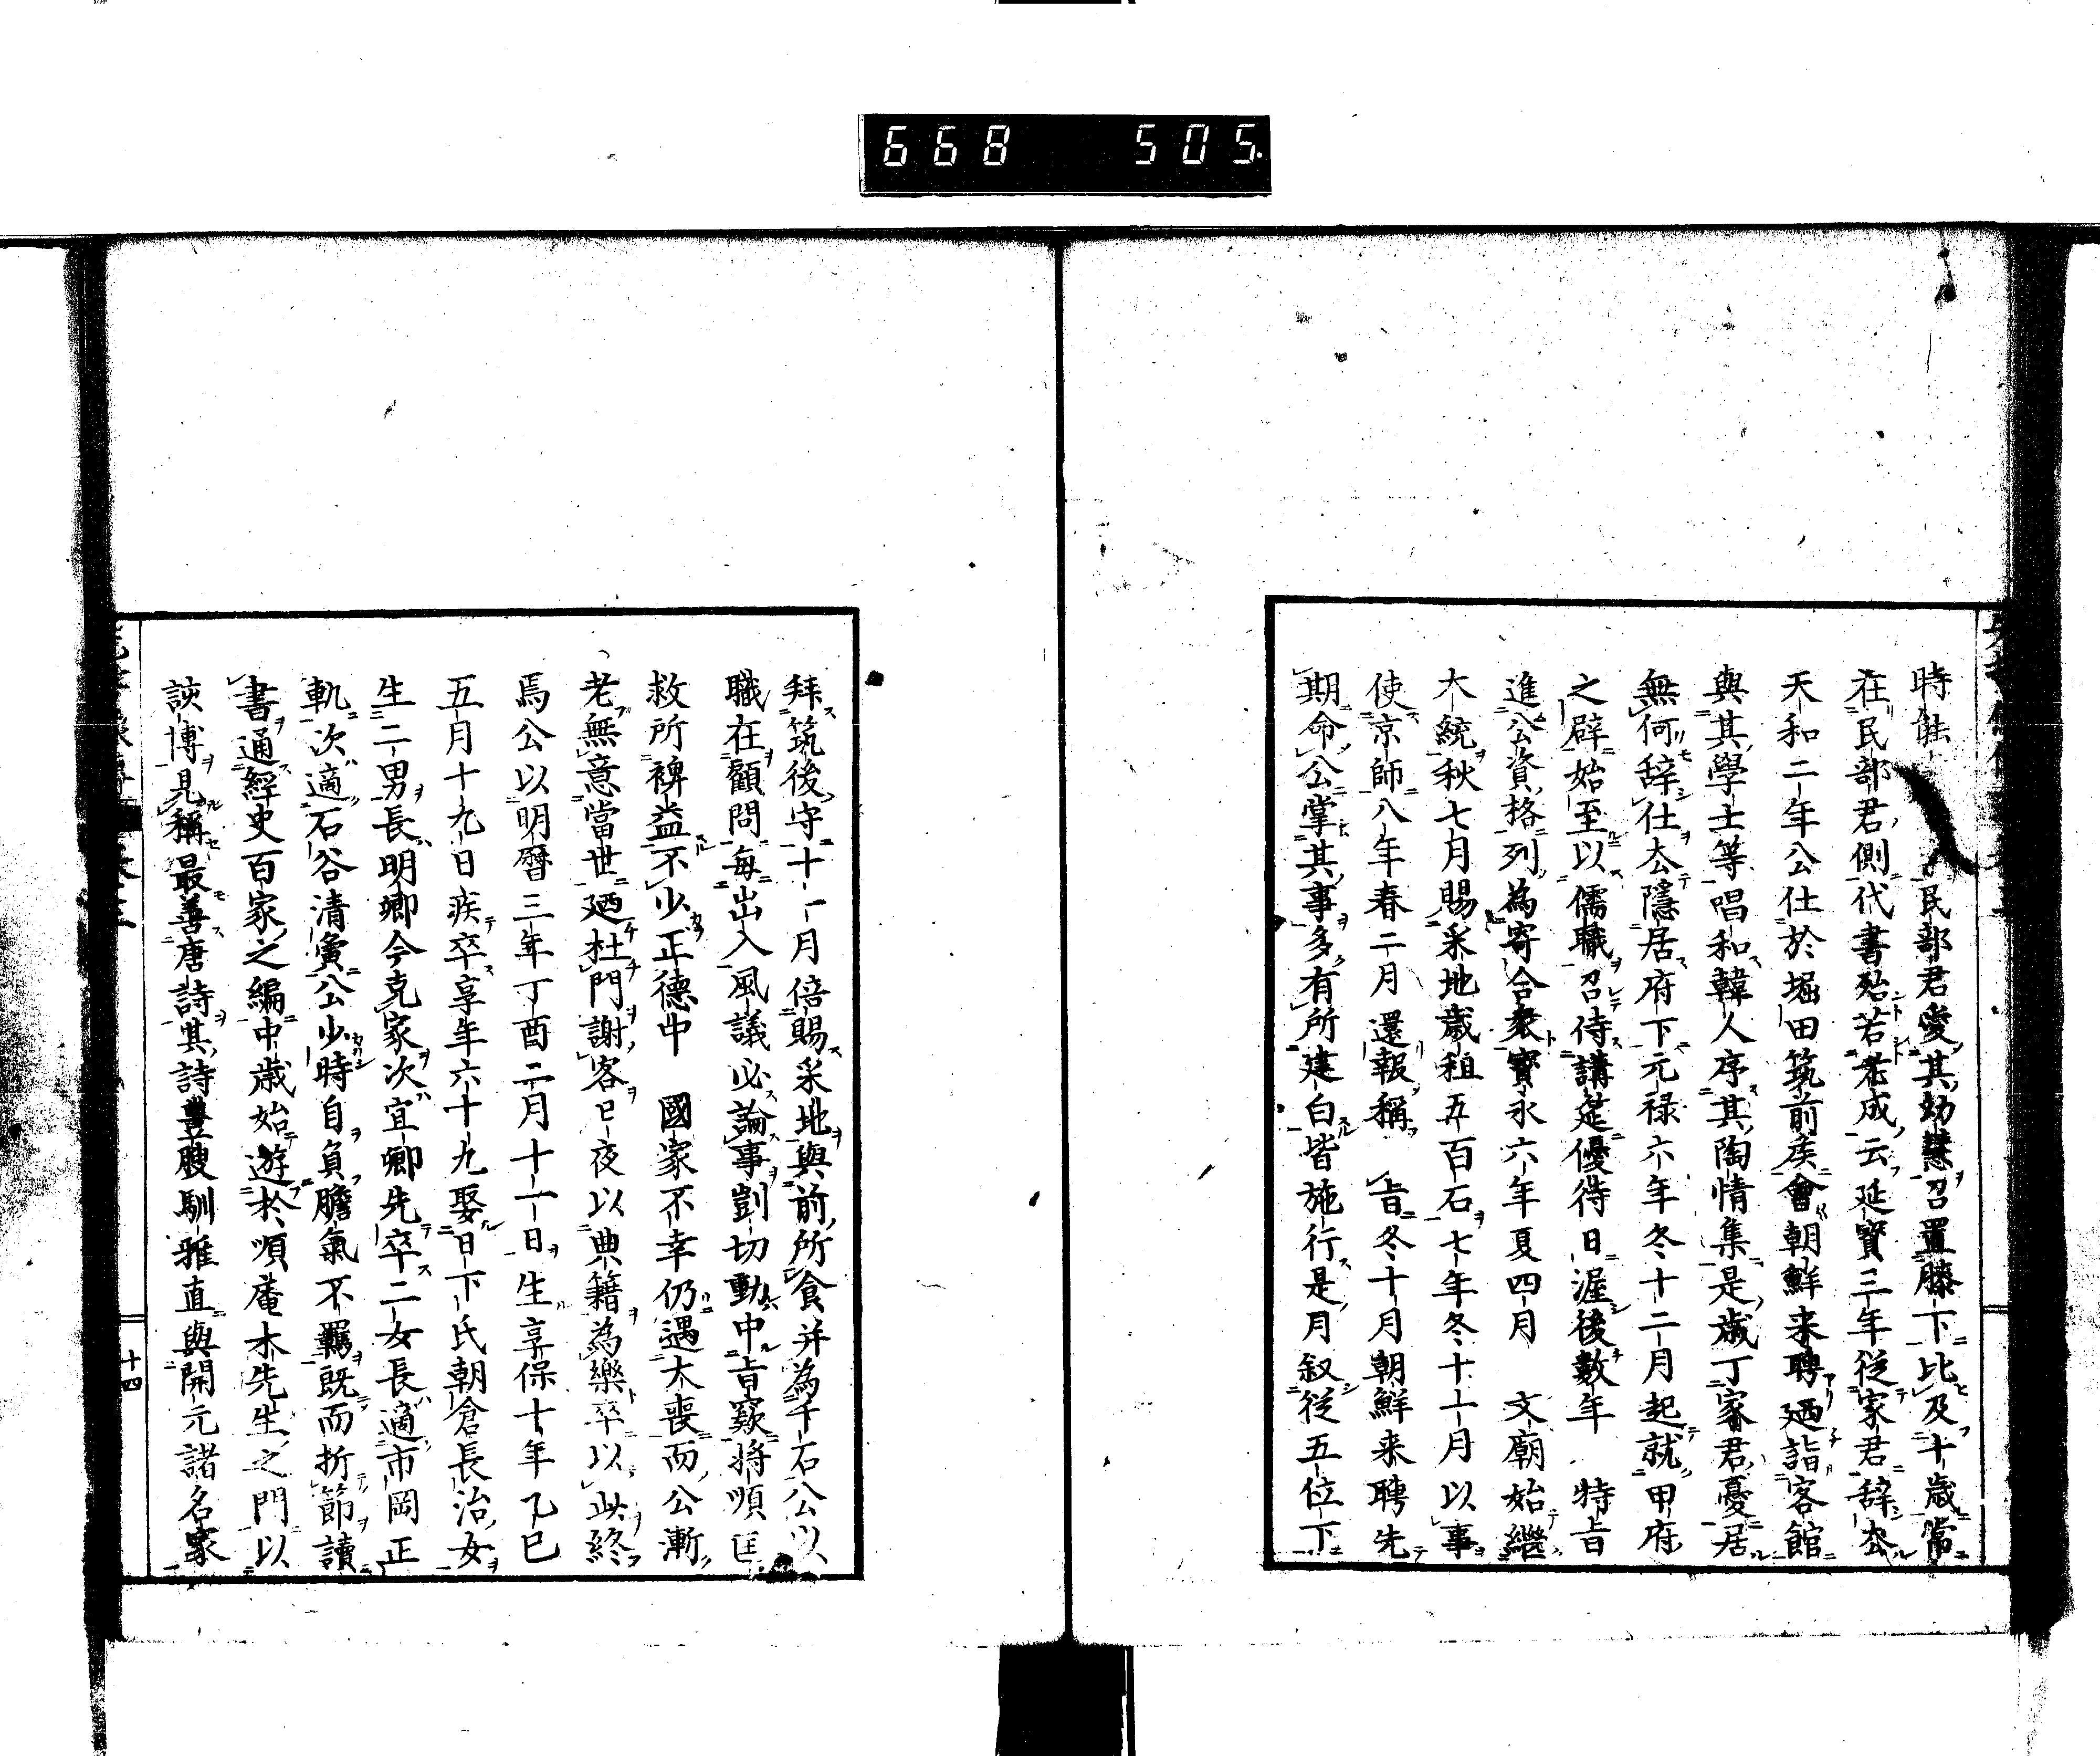 668 505.
時䏻　民部君愛其幼慧召置膝下比及十歳常
在民部君側代書殆若老成云延寶三年従家君辞厺
天和二年公仕於堀田筑前矦會朝鮮来聘廼詣客館
與其學士等唱和韓人序其陶情集是歳丁家君憂居
無何辞仕厺隱居府下元禄六年冬十二月起就甲府
之辟始至以儒職召侍講莚優待日渥後數年　特旨
進公資格列為寄合衆寳永六年夏四月　文廟始繼
大統秋七月賜采地歳租五百石七年冬十一月以事
使京師八年春二月還報稱　旨冬十月朝鮮来聘先
期命公掌其事多有所建白皆施行是月叙従五位下
拜筑後守十一月倍賜采地與前所食并為千石公以
職在顧問毎出入風議必論事剴切動中旨窾将順匡
救所裨益不少正德中　國家不幸仍遇大喪而公漸
老無意當世廼杜門謝客日夜以典籍為樂卒以此終
焉公以明暦三年丁酉二月十一日生享保十年乙巳
五月十九日疾卒享年六十九娶日下氏朝倉長治女
生二男長明卿今克家次宜卿先卒二女長適市岡正
軌次適石谷清寅公少時自負膽氣不羈既而折節讀
書通經史百家之編中歳始遊於順庵木先生之門以
談博見稱最善唐詩其詩豊腴馴雅直與開元諸名家
十四